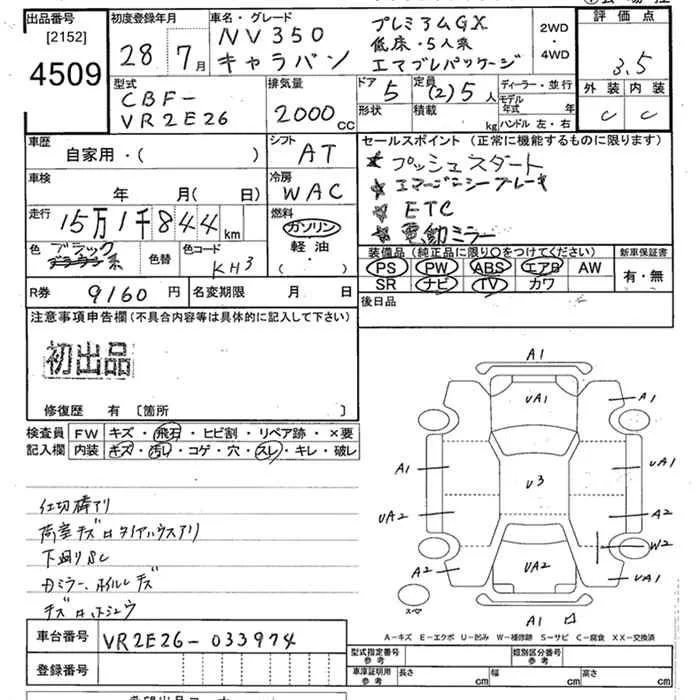 出品番号
[2152]
4509
初度登録年月
28年 7月
車名・グレード
NV350
キャラバン
プレミアムGX
低床・5人乗
エマブレパッケージ
2WD
・
4WD
評価点
3.5
外装 内装
C C
型式
CBF-
VR2E26
排気量
2000 CC
ドア 5
形状
定員 (2)5 人
積載 kg
ディーラー・並行
モデル年式 年
ハンドル 左・右
車歴
自家用・( )
シフト AT
セールスポイント (正常に機能するものに限ります)
★ プッシュスタート
★ エマージェンシーブレーキ
★ ETC
★ 電動ミラー
車検
年 月( 日)
冷房 WAC
走行
15万1千844 km
燃料
ガソリン
軽油・
( ・ )
色 ブラック系
色替
色コード KH3
装備品 (純正品に限り○をつけてください)
PS PW ABS エアB AW
SR ナビ TV カワ
新車保証書
有・無
R券 9160 円
名変期限 月 日
後日品
注意事項申告欄 (不具合内容等は具体的に記入して下さい)
初出品
修復歴 有 〔箇所 〕
検査員 FW キズ・飛石・ヒビ割・リペア跡・×要
記入欄 内装 キズ・汚レ・コゲ・穴・スレ・キレ・破レ
仕切棒アリ
下廻りSC
Dミラー、ホイルキズ
A1
UA1
A1
A1
UA1
U3
UA2
A2
W2
A2
UA2
UA1
A1
スペア
A-キズ E-エクボ U-凹み W-補修跡 S-サビ C-腐食 XX-交換済
車台番号 VR2E26-033974
登録番号
型式指定番号
参考
類別区分番号
参考
車庫証明用
参考
長さ cm
幅 cm
高さ cm